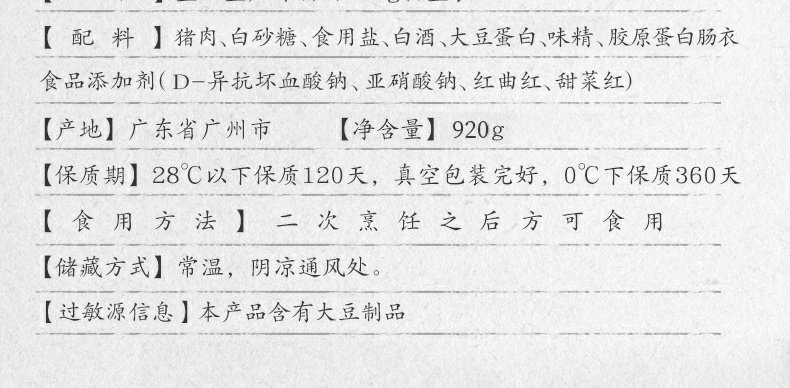 【 配 料 】猪肉、白砂糖、食用盐、白酒、大豆蛋白、味精、胶原蛋白肠衣
食品添加剂(D-异抗坏血酸钠、亚硝酸钠、红曲红、甜菜红)
【产地】广东省广州市 【净含量】920g
【保质期】28℃以下保质120天，真空包装完好，0℃下保质360天
【 食 用 方 法 】 二 次 烹 饪 之 后 方 可 食 用
【储藏方式】常温，阴凉通风处。
【过敏源信息】本产品含有大豆制品